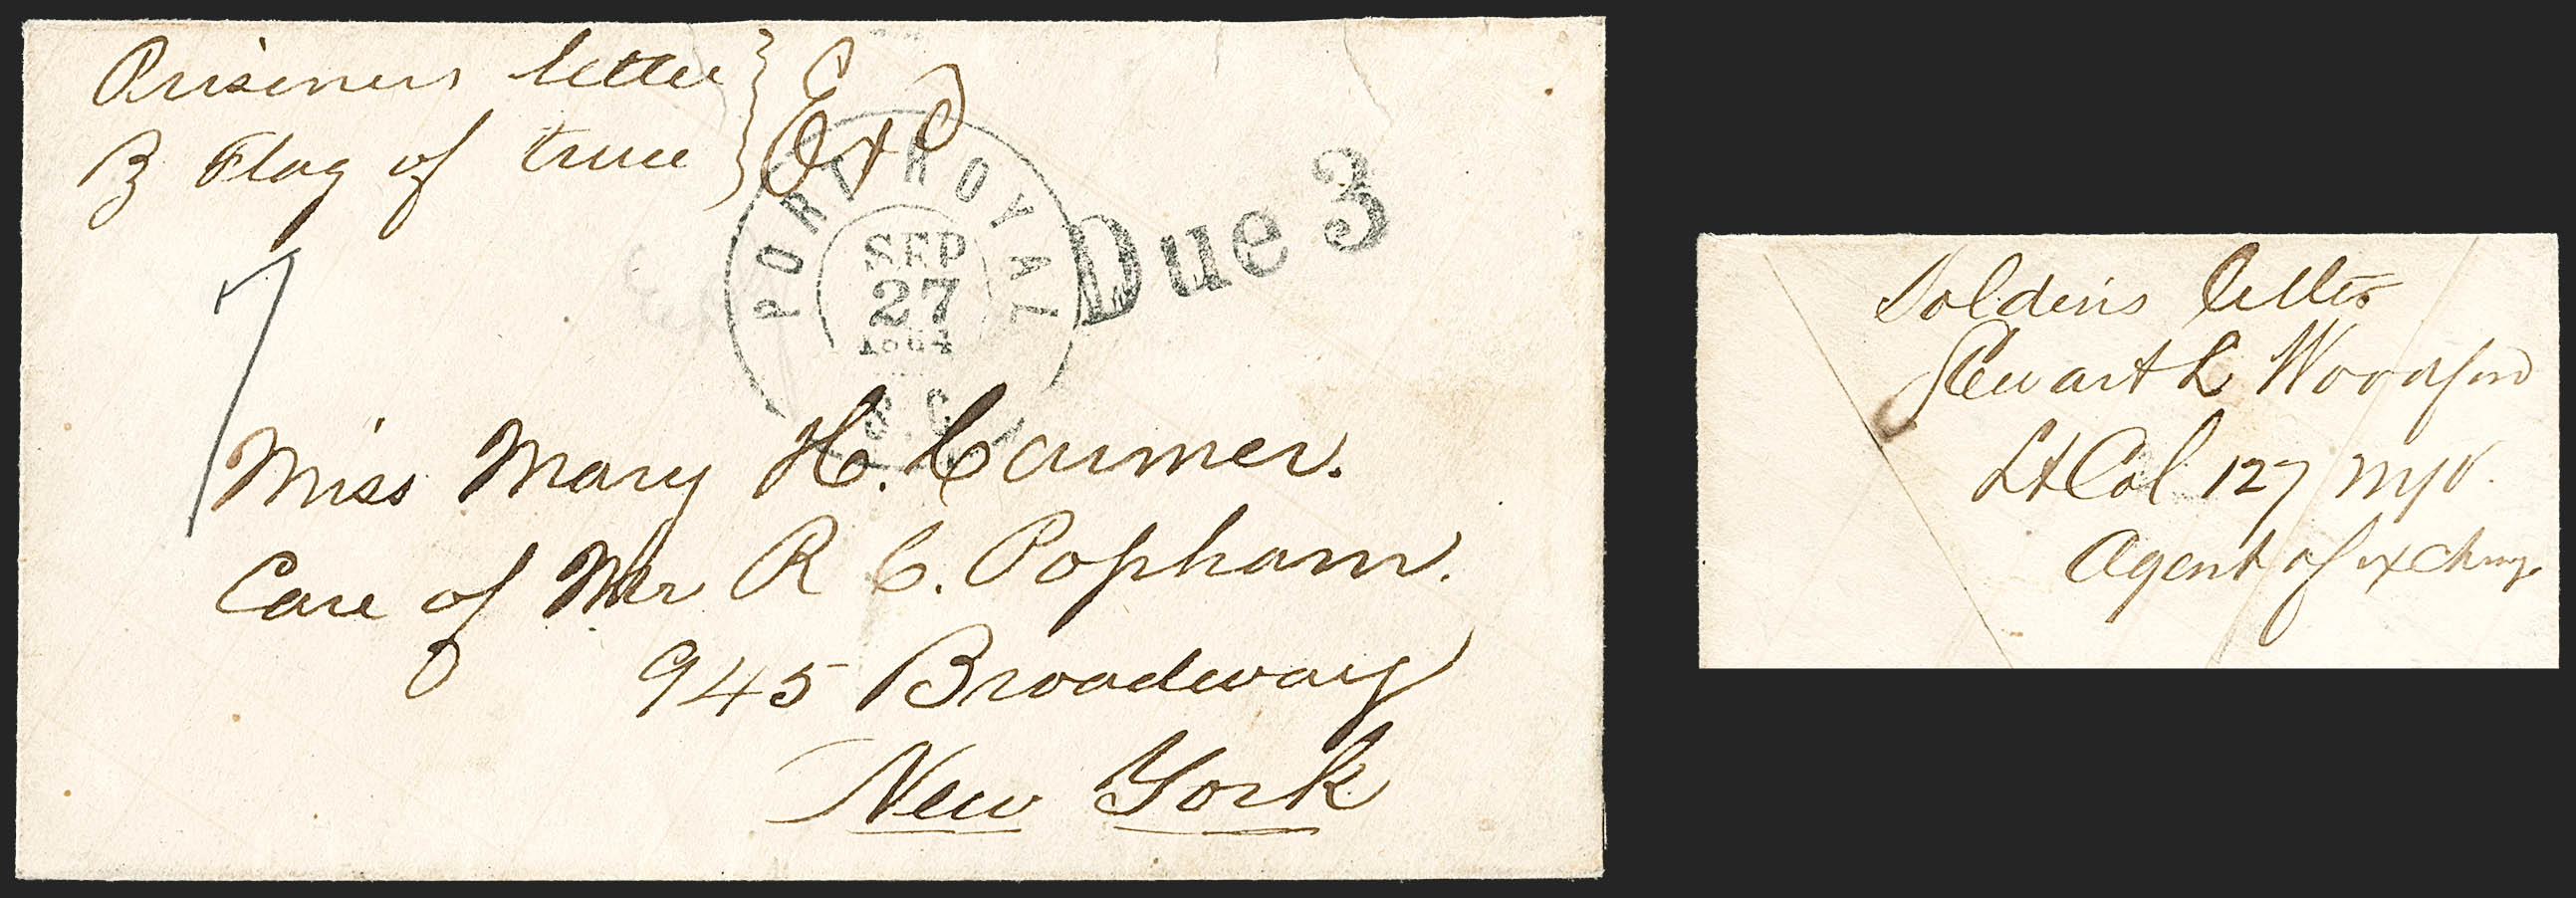 Prisoners letter
By Flag of truce
Exd
PORT ROYAL
SEP
27
1864
S.C.
Due 3
Miss Mary H. Carmer.
Care of Mr R C. Popham.
945 Broadway
New York
Soldiers letter
Stewart L Woodford
Lt Col 127 NYV.
Agent of exchange